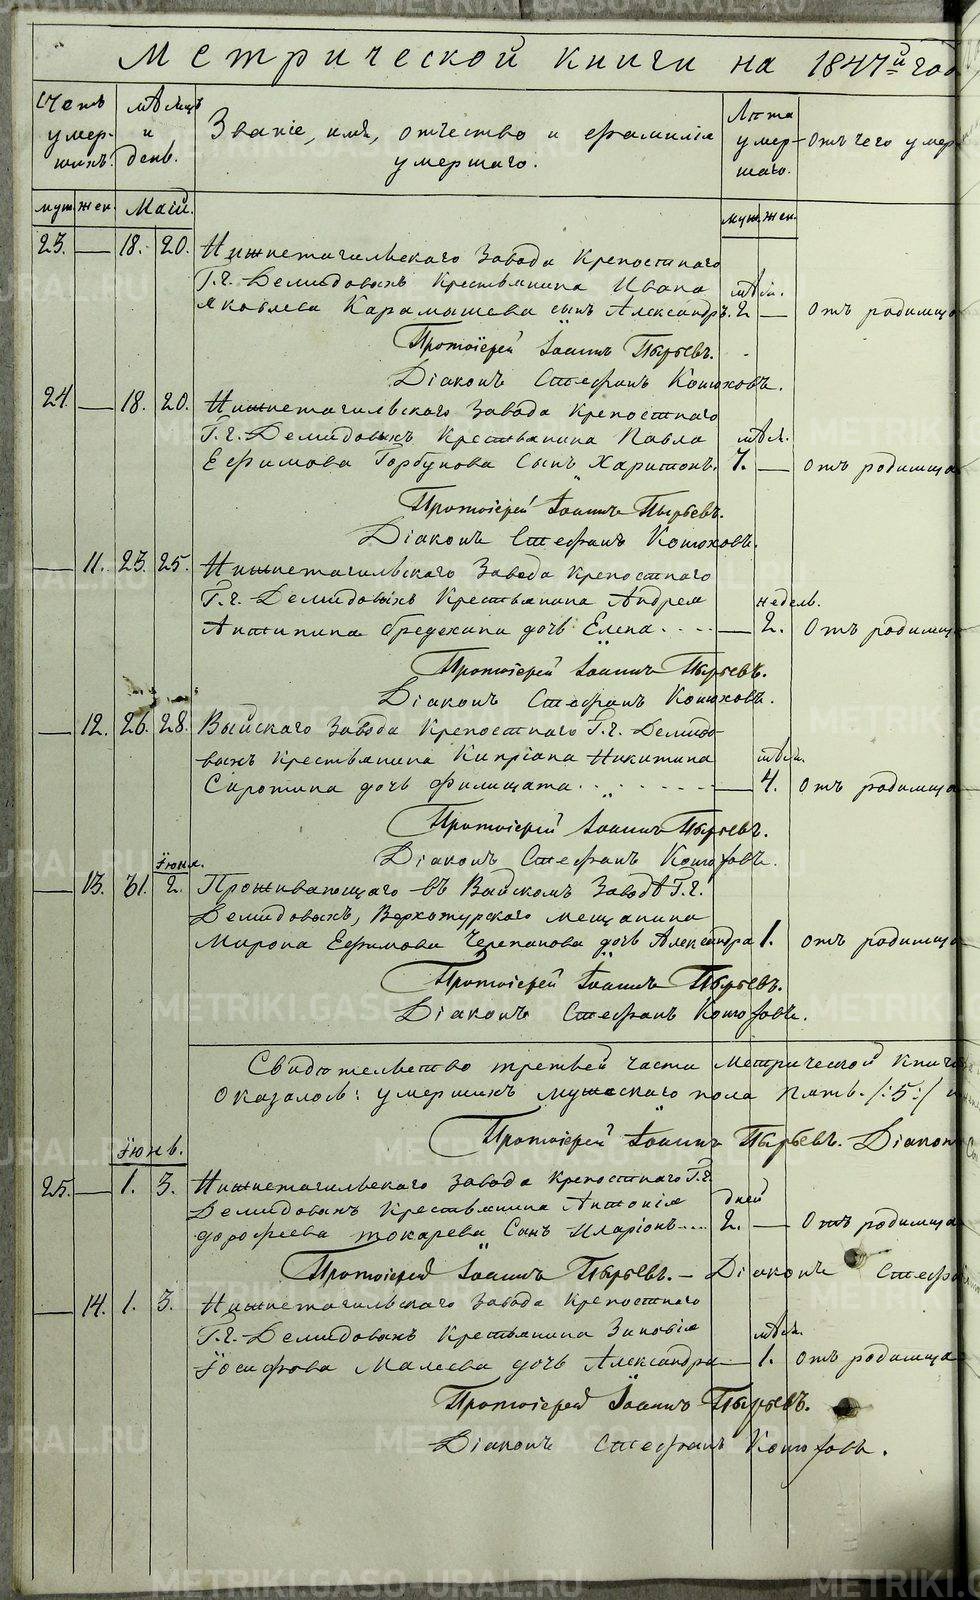 Метрической книги на 1847й год
Счетъ умершихъ.
мѣсяцъ и день.
Званіе, имя, отчество и фамилія умершаго.
Лѣта умершаго.
Отъ чего умер
муж. жен. Маій. муж. жен.
23. — 18. 20. Нижнетагильскаго Завода Крепостнаго
Г.г. Демидовыхъ Крестьянина Ивана мѣся.
Яковлева Карамышева сынъ Александръ. 2 — отъ родимца
Протоіерей Іоаннъ Пырьевъ.
Діаконъ Стефанъ Конюховъ.
24. — 18. 20. Нижнетагильскаго Завода Крепостнаго
Г.г. Демидовыхъ Крестьянина Павла мѣся.
Ефимова Горбунова Сынъ Харитонъ. 7. — отъ родимца
Протоіерей Іоаннъ Пырьевъ.
Діаконъ Стефанъ Конюховъ.
— 11. 23. 25. Нижнетагильскаго Завода Крепостнаго
Г.г. Демидовыхъ Крестьянина Андрея недель.
Антипина Бредехина дочь Елена. — 2. Отъ родимца
Протоіерей Іоаннъ Пырьевъ.
Діаконъ Стефанъ Конюховъ.
— 12. 26. 28. Выйскаго Завода Крепостнаго Г.г. Демидо-
выхъ Крестьянина Кипріана Никитина мѣся.
Сиротина дочь Филицата. — 4. отъ родимца
Протоіерей Іоаннъ Пырьевъ.
Діаконъ Стефанъ Конюховъ.
Іюня.
— 13. 31. 2. Проживающаго въ Выйскомъ Заводѣ Г.г.
Демидовыхъ, Верхотурскаго мещанина
Мирона Ефимова Черепанова дочь Александра 1. отъ родимца
Протоіерей Іоаннъ Пырьевъ.
Діаконъ Стефанъ Конюховъ.
Свидѣтельство третьей части Метрической Книги
Оказалось: умершихъ мужескаго пола пять. /:5:/ и
Протоіерей Іоаннъ Пырьевъ. Діаконъ
Іюнь.
25. — 1. 3. Нижнетагильскаго Завода Крепостнаго Г.г.
Демидовыхъ Крестьянина Антонія дней
дорофеева токарева Сынъ Иларіонъ. 2. — Отъ родимца
Протоіерей Іоаннъ Пырьевъ. — Діаконъ Стефа
— 14. 1. 3. Нижнетагильскаго Завода Крепостнаго
Г.г. Демидовыхъ Крестьянина Зиновія мѣся.
Іосифова Малеева дочь Александра — 1. Отъ родимца
Протоіерей Іоаннъ Пырьевъ.
Діаконъ Стефанъ Конюховъ.
METRIKI.GASO-URAL.RU